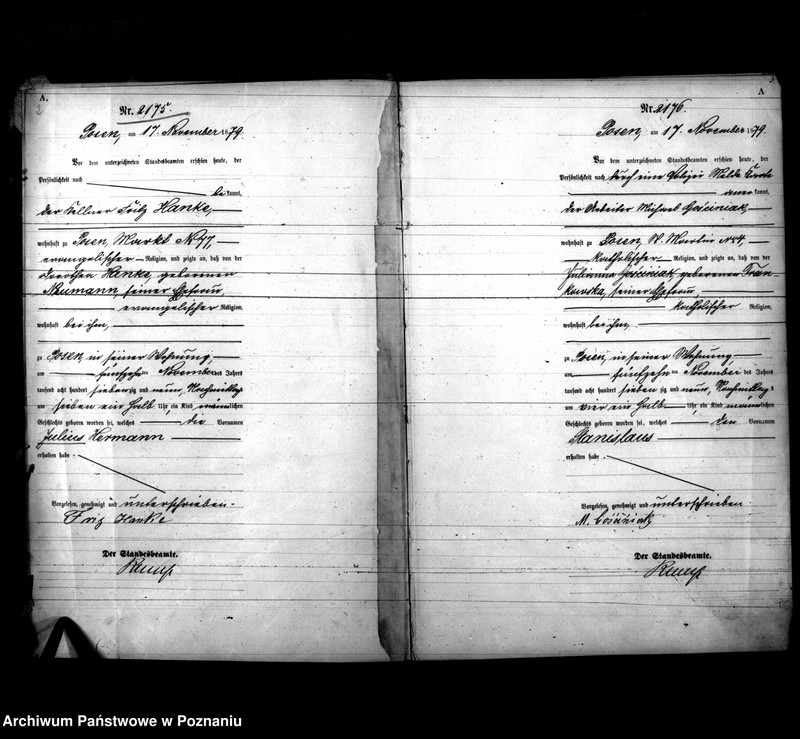 A.
2
Nr. 2175.
Posen, am 17. November 1879.
Vor dem unterzeichneten Standesbeamten erschien heute, der
Persönlichkeit nach
be kannt,
der Kellner Fritz Hanke,
wohnhaft zu Posen, Markt No 77,
evangelischer Religion, und zeigte an, daß von der
Dorothea Hanke, geborenen
Neumann, seiner Ehefrau,
evangelischer Religion,
wohnhaft bei ihm,
zu Posen, in seiner Wohnung,
am fünfzehnten November des Jahres
tausend acht hundert siebenzig und neun, Nachmittags
um sieben ein halb Uhr ein Kind männlichen
Geschlechts geboren worden sei, welches die Vornamen
Julius Hermann
erhalten habe
Vorgelesen, genehmigt und unterschrieben.
Fritz Hanke
Der Standesbeamte.
A
Nr. 2176.
Posen, am 17. November 1879.
Vor dem unterzeichneten Standesbeamten erschien heute, der
Persönlichkeit nach, durch eine
aner kannt,
der Arbeiter Michael Gościniak,
wohnhaft zu Posen, St. Martin No 4,
katholischer Religion, und zeigte an, daß von der
Julianna Gościniak, geborenen Fran-
kowska, seiner Ehefrau,
katholischer Religion,
wohnhaft bei ihm,
zu Posen, in seiner Wohnung
am fünfzehnten November des Jahres
tausend acht hundert siebenzig und neun, Nachmittags
um vier ein halb Uhr ein Kind männlichen
Geschlechts geboren worden sei, welches den Vornamen
Stanislaus
erhalten habe
Vorgelesen, genehmigt und unterschrieben
M. Gościniak
Der Standesbeamte.
Archiwum Państwowe w Poznaniu